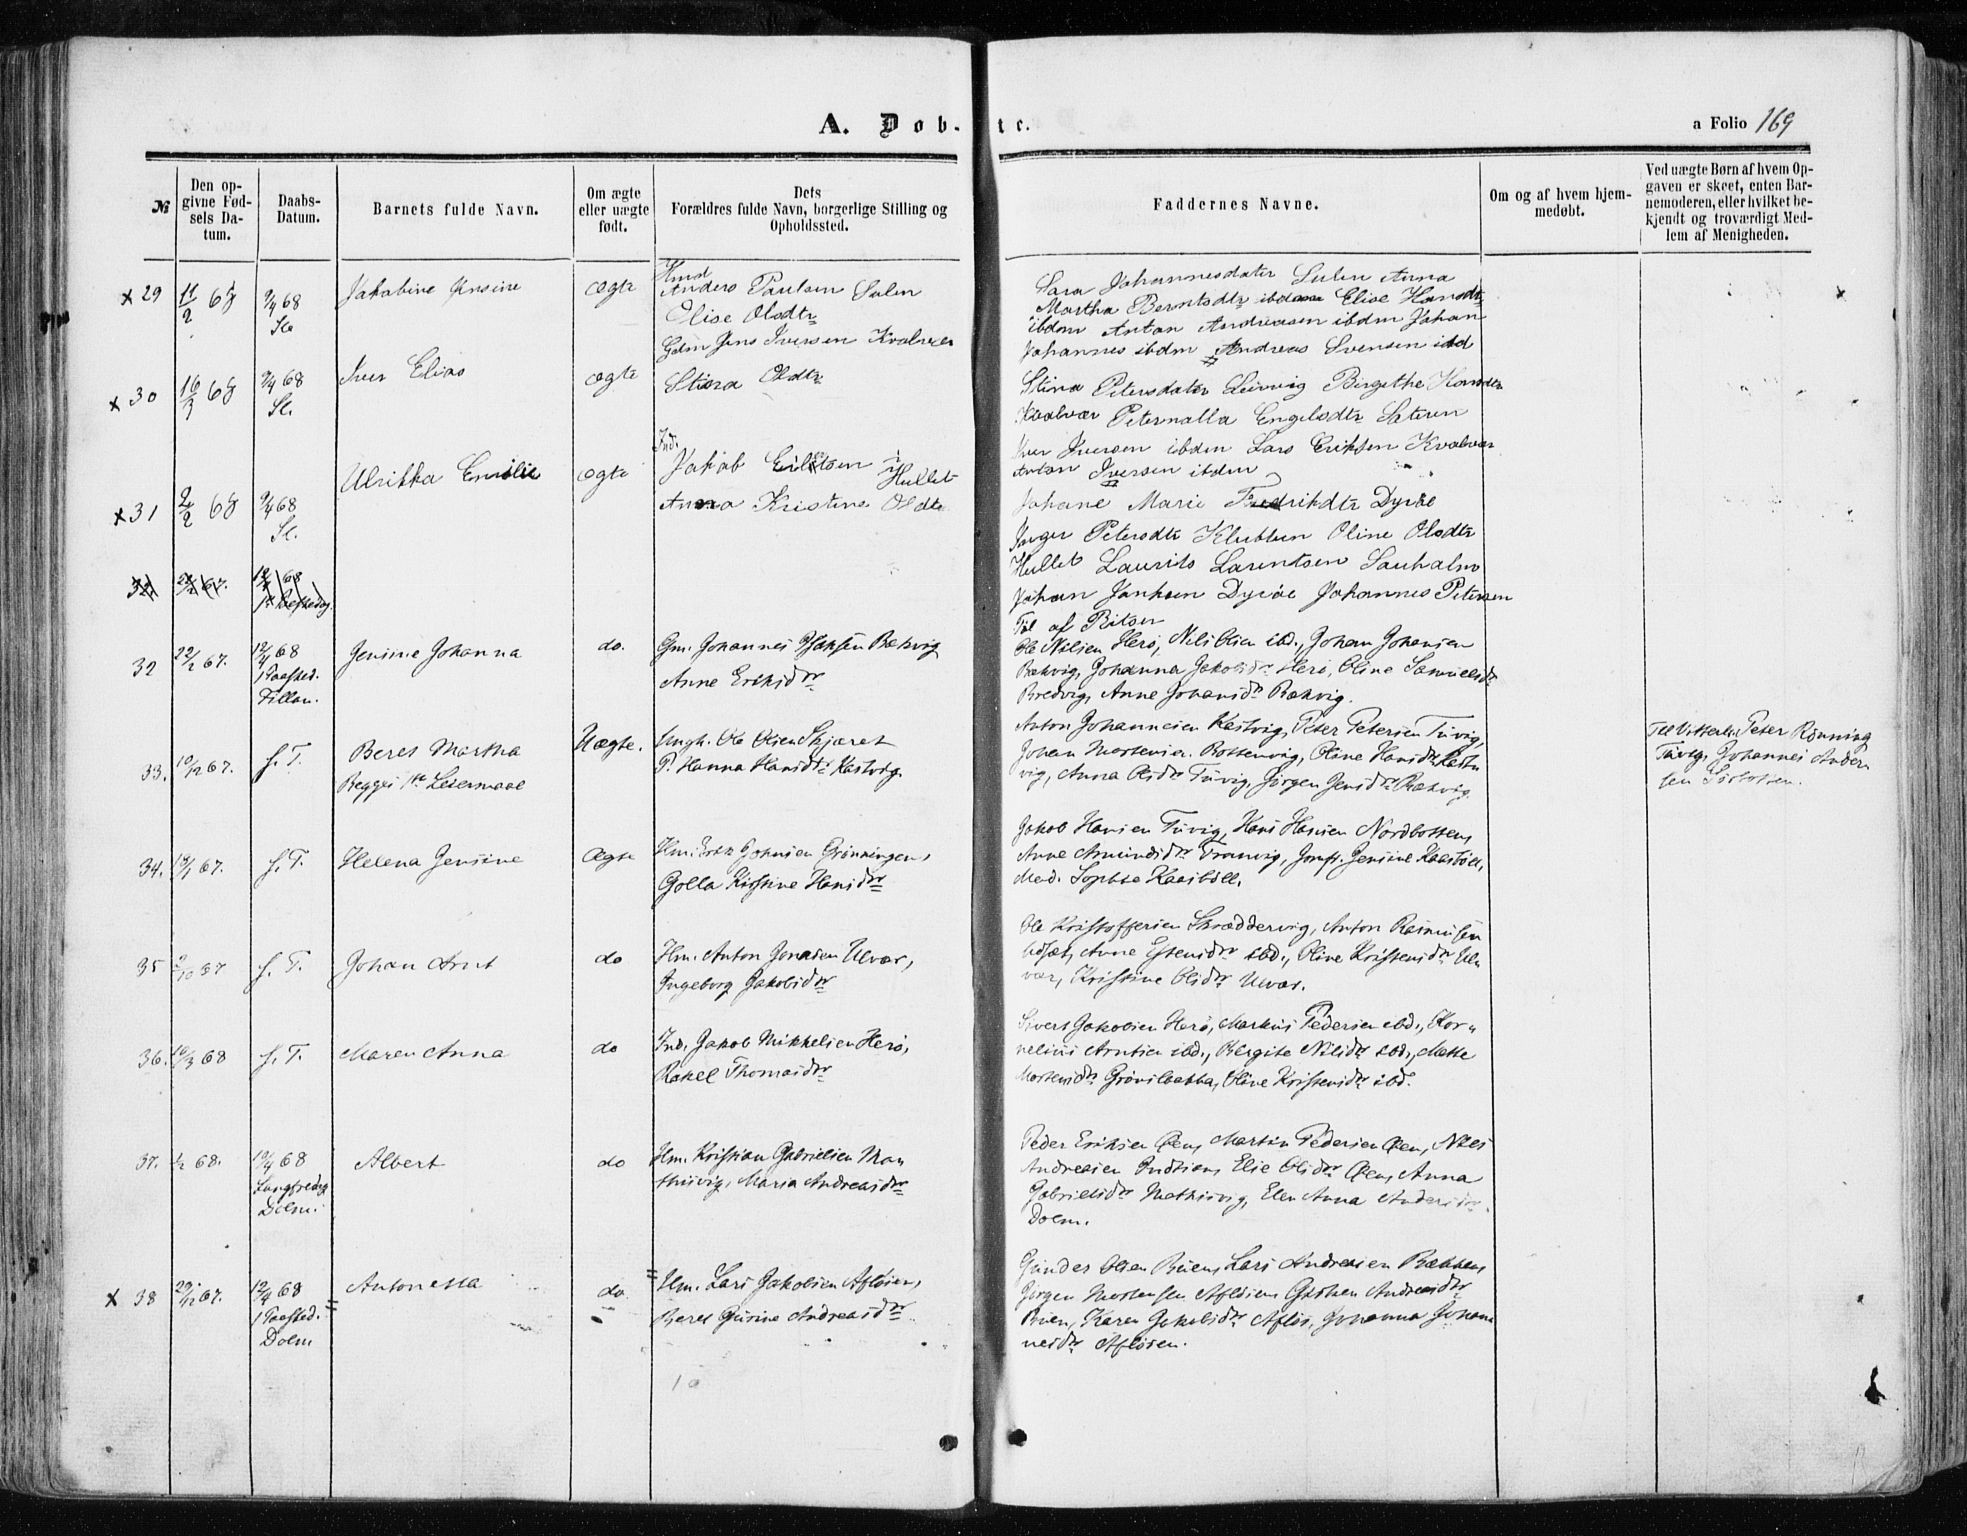 A. Døb- te.
a Folio 169
№
Den opgivne Fødsels Datum.
Daabs-Datum.
Barnets fulde Navn.
Om ægte eller uægte født.
Dets Forældres fulde Navn, borgerlige Stilling og Opholdssted.
Faddernes Navne.
Om og af hvem hjemmedøbt.
Ved uægte Børn af hvem Opgaven er skeet, enten Barnemoderen, eller hvilket bekjendt og troværdigt Medlem af Menigheden.
x 29 11/2 68 9/4 68 Sl. Jakobine Jensine ægte Hmd Anders Paulsen Sulen
Olise Olsdtr
Sara Johannesdater Sulen Anna
Martha Berntsdtr ibdm Elise Hansdtr
ibdm Anton Andreasen ibdm Johan
Johannes ibdm Andreas Svensen ibd
x 30 16/3 68 9/4 68 Sl. Iver Elias ægte Gdm Jens Iversen Kvalvær
Stina Olsdtr
Stina Petersdater Leirvig Birgithe Hansdtr
Kvalvær Peternella Engelsdtr Sæteren
Iver Iversen ibdm Lars Eriksen Kvalvær
Anton Iversen ibdm
x 31 2/2 68 9/4 68 Sl. Ulrikka Emilie ægte Ind. Jakob Eilertsen i Hullet
Anna Kristine Olsdtr
Johane Marie Fredrikdtr Dyrøe
Inger Petersdtr Klubben Oline Olsdtr
Hullet Laurits Larentsen Sauholm
Johan Janhsen Dyrøe Johannes Petersen
32 22/12 67. 12/4 68 1ste Paaskedag.
32 22/12 67. 12/4 68 1 Paasked. Fillan. Jensine Johanna do. Gm. Johannes Isaksen Bækvig
Anne Eriksdtr
Ole Nilsen Herø, Nils Olsen ibd., Johan Johansen
Bækvig, Johanna Jakobsdtr Herø, Oline Samuelsdtr
Bredvig, Anne Johansdtr Bækvig.
33. 10/12 67. s. T. Beret Martha
Begges 1ste Leiermaal Uægte. Ungk. Ole Olsen Skjæret
P. Hanna Hansdtr Kastvig
Anton Johannesen Kastvig, Peter Petersen Tuvig,
Johan Mortensen Bottenvig, Oline Hansdtr Kast-
vig, Anna Olsdtr Tuvig, Jørgen Jensdtr Bækvig.
Til Vitterl. Peter Rønning
Tuvig, Johannes Ander-
sen
34. 19/1 67. s. T. Helena Jensine Ægte Hm. Erik Johnsen Grønningen,
Golla Kirstine Hansdtr
Jakob Hansen Tuvig, Hans Hansen Nordbotten,
Anne Amundsdtr Tranvig, Jomfr. Jensine Kaasbøll,
Mad. Sophie Kaasbøll.
35 9/10 67 s. T. Johan Arnt do Hm. Anton Jonasen Ulvær,
Ingeborg Jakobsdtr
Ole Kristoffersen Skræddervig, Anton Rasmusen
Anne Estensdtr ibd., Oline Kristensdtr Ul-
vær, Kristine Olsdtr Ulvær.
36. 16/3 68 s. T. Maren Anna do Ind. Jakob Mikkelsen Herø,
Rakel Thomasdtr
Sivert Jakobsen Herø, Markus Pedersen ibd., Kor-
nelius Arntsen ibd., Bergite Nilsdtr ibd., Mette
Mortensdtr Grønsbakka, Oline Kristensdtr ibd.
37. 1/2 68. 10/4 68 Langfredag Dolm. Albert do Hm. Kristian Gabrielsen Ma-
thisvig, Maria Andreasdtr
Peder Eriksen Øen, Martin Pedersen Øen, Nils
Andreasen Indsien, Elie Olsdtr Øen, Anna
Gabrielsdtr Mathisvig, Elen Anna Andersdtr
Dolm.
x 38 29/12 67. 12/4 68 1 Paasked. Dolm Antonetta do Hm. Lars Jakobsen Afløsen,
Beret Gurine Andreasdtr
Gunder Olsen Buen, Lars Andreasen Bakken,
Jørgen Mortensen Afløsen, Andreasdtr
Buen, Karen Jakobsdtr Afløs, Johanna Johan-
nesdtr Afløsen.
10